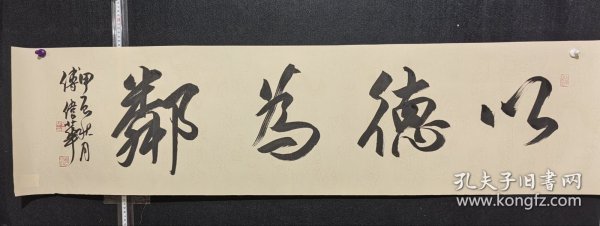 以德為鄰
甲辰秋月
傅偉華
孔夫子旧书网
www.kongfz.com